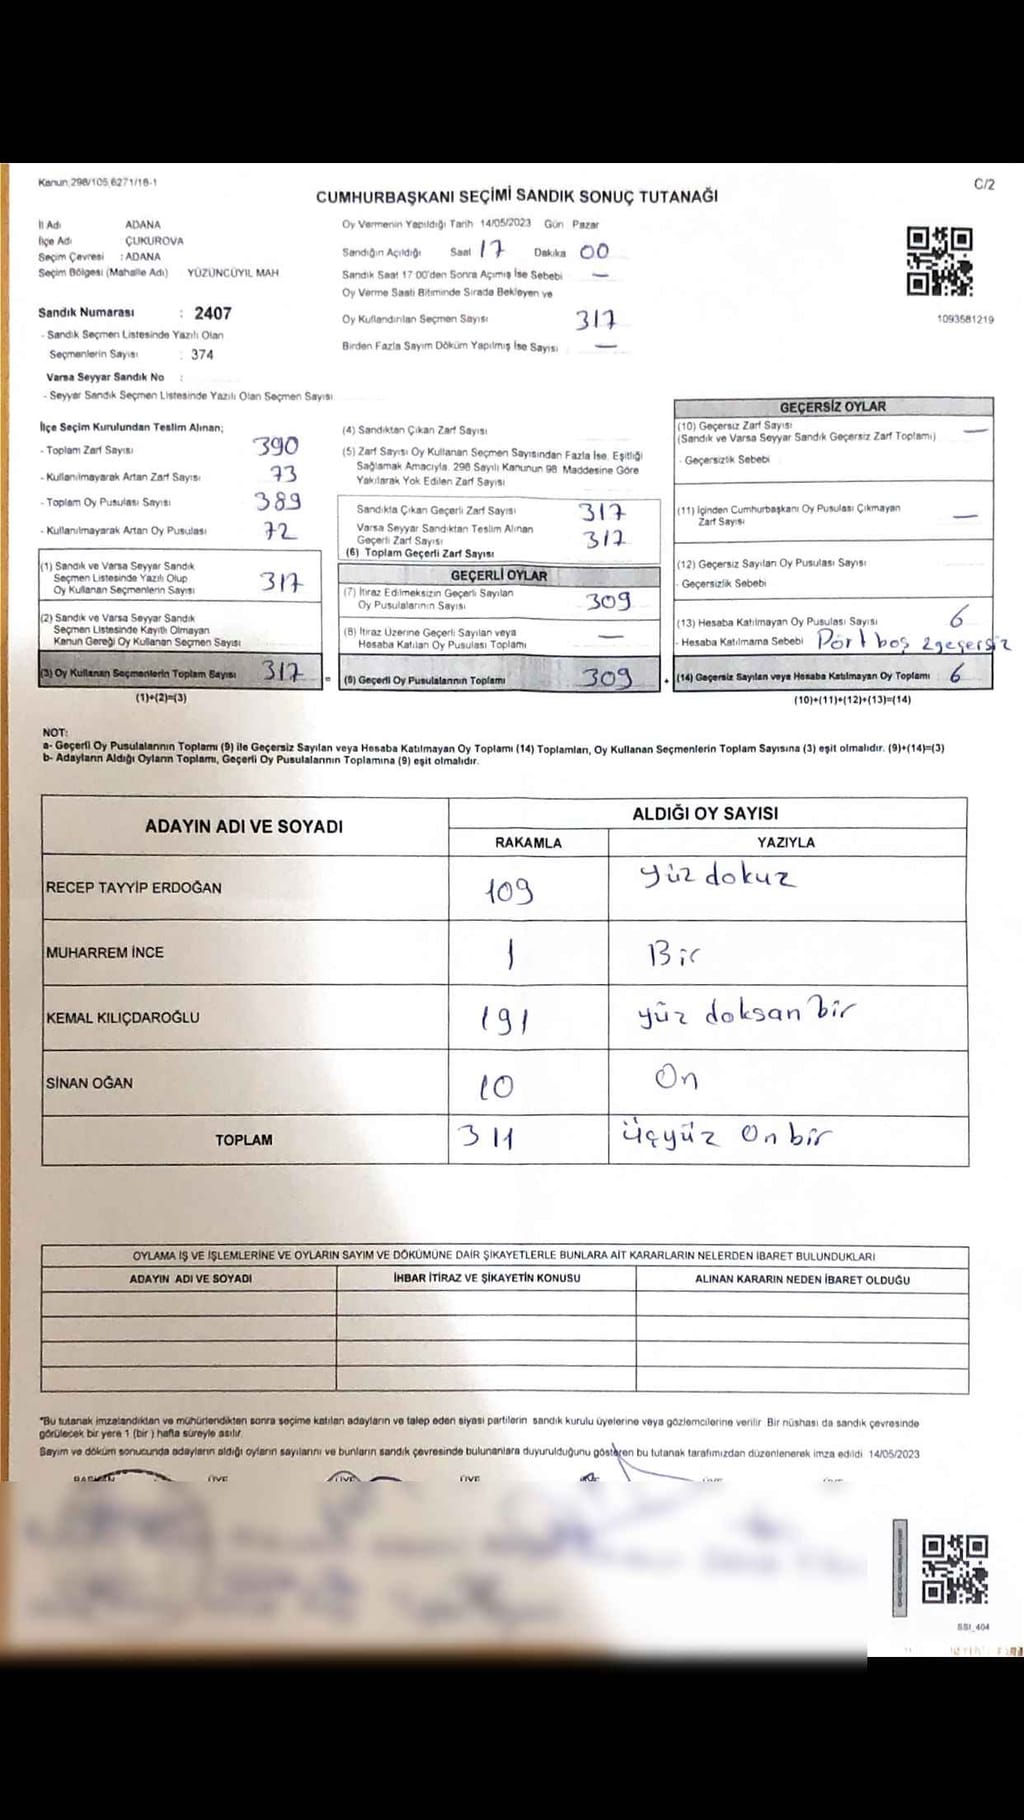 Kanun:298/105,6271/16-1
C/2
CUMHURBAŞKANI SEÇİMİ SANDIK SONUÇ TUTANAĞI
İl Adı ADANA
İlçe Adı ÇUKUROVA
Seçim Çevresi : ADANA
Seçim Bölgesi (Mahalle Adı) YÜZÜNCÜYIL MAH
Oy Vermenin Yapıldığı Tarih 14/05/2023 Gün Pazar
Sandığın Açıldığı Saat 17 Dakika 00
Sandık Saat 17 00'den Sonra Açımış İse Sebebi —
Oy Verme Saati Bitiminde Sırada Bekleyen ve
Oy Kullandırılan Seçmen Sayısı 317
Birden Fazla Sayım Döküm Yapılmış İse Sayısı —
1093581219
Sandık Numarası : 2407
- Sandık Seçmen Listesinde Yazılı Olan
Seçmenlerin Sayısı : 374
Varsa Seyyar Sandık No :
- Seyyar Sandık Seçmen Listesinde Yazılı Olan Seçmen Sayısı
İlçe Seçim Kurulundan Teslim Alınan;
- Toplam Zarf Sayısı 390
- Kullanılmayarak Artan Zarf Sayısı 73
- Toplam Oy Pusulası Sayısı 389
- Kullanılmayarak Artan Oy Pusulası 72
(1) Sandık ve Varsa Seyyar Sandık
Seçmen Listesinde Yazılı Olup
Oy Kullanan Seçmenlerin Sayısı 317
(2) Sandık ve Varsa Seyyar Sandık
Seçmen Listesinde Kayıtlı Olmayan
Kanun Gereği Oy Kullanan Seçmen Sayısı
(3) Oy Kullanan Seçmenlerin Toplam Sayısı 317
(1)+(2)=(3)
(4) Sandıktan Çıkan Zarf Sayısı
(5) Zarf Sayısı Oy Kullanan Seçmen Sayısından Fazla İse, Eşitliği
Sağlamak Amacıyla, 298 Sayılı Kanunun 98 Maddesine Göre
Yakılarak Yok Edilen Zarf Sayısı
Sandıkta Çıkan Geçerli Zarf Sayısı 317
Varsa Seyyar Sandıktan Teslim Alınan
Geçerli Zarf Sayısı 317
(6) Toplam Geçerli Zarf Sayısı
GEÇERLİ OYLAR
(7) İtiraz Edilmeksizin Geçerli Sayılan
Oy Pusulalarının Sayısı 309
(8) İtiraz Üzerine Geçerli Sayılan veya
Hesaba Katılan Oy Pusulası Toplamı —
= (9) Geçerli Oy Pusulalarının Toplamı 309
GEÇERSİZ OYLAR
(10) Geçersiz Zarf Sayısı —
(Sandık ve Varsa Seyyar Sandık Geçersiz Zarf Toplamı)
- Geçersizlik Sebebi
(11) İçinden Cumhurbaşkanı Oy Pusulası Çıkmayan
Zarf Sayısı —
(12) Geçersiz Sayılan Oy Pusulası Sayısı
- Geçersizlik Sebebi
(13) Hesaba Katılmayan Oy Pusulası Sayısı 6
- Hesaba Katılmama Sebebi Dört boş 2geçersiz
+ (14) Geçersiz Sayılan veya Hesaba Katılmayan Oy Toplamı 6
(10)+(11)+(12)+(13)=(14)
NOT:
a- Geçerli Oy Pusulalarının Toplamı (9) ile Geçersiz Sayılan veya Hesaba Katılmayan Oy Toplamı (14) Toplamları, Oy Kullanan Seçmenlerin Toplam Sayısına (3) eşit olmalıdır. (9)+(14)=(3)
b- Adayların Aldığı Oyların Toplamı, Geçerli Oy Pusulalarının Toplamına (9) eşit olmalıdır.
ADAYIN ADI VE SOYADI
ALDIĞI OY SAYISI
RAKAMLA YAZIYLA
RECEP TAYYİP ERDOĞAN 109 yüz dokuz
MUHARREM İNCE 1 Bir
KEMAL KILIÇDAROĞLU 191 yüz doksan bir
SİNAN OĞAN 10 On
TOPLAM 311 üçyüz On bir
OYLAMA İŞ VE İŞLEMLERİNE VE OYLARIN SAYIM VE DÖKÜMÜNE DAİR ŞİKAYETLERLE BUNLARA AİT KARARLARIN NELERDEN İBARET BULUNDUKLARI
ADAYIN ADI VE SOYADI İHBAR İTİRAZ VE ŞİKAYETİN KONUSU ALINAN KARARIN NEDEN İBARET OLDUĞU
"Bu tutanak imzalandıktan ve mühürlendikten sonra seçime katılan adayların ve talep eden siyasi partilerin sandık kurulu üyelerine veya gözlemcilerine verilir Bir nüshası da sandık çevresinde
görülecek bir yere 1 (bir) hafta süreyle asılır.
Sayım ve döküm sonucunda adayların aldığı oyların sayılarını ve bunların sandık çevresinde bulunanlara duyurulduğunu gösteren bu tutanak tarafımızdan düzenlenerek imza edildi 14/05/2023
BAŞKAN ÜYE ÜYE ÜYE
SSI_404